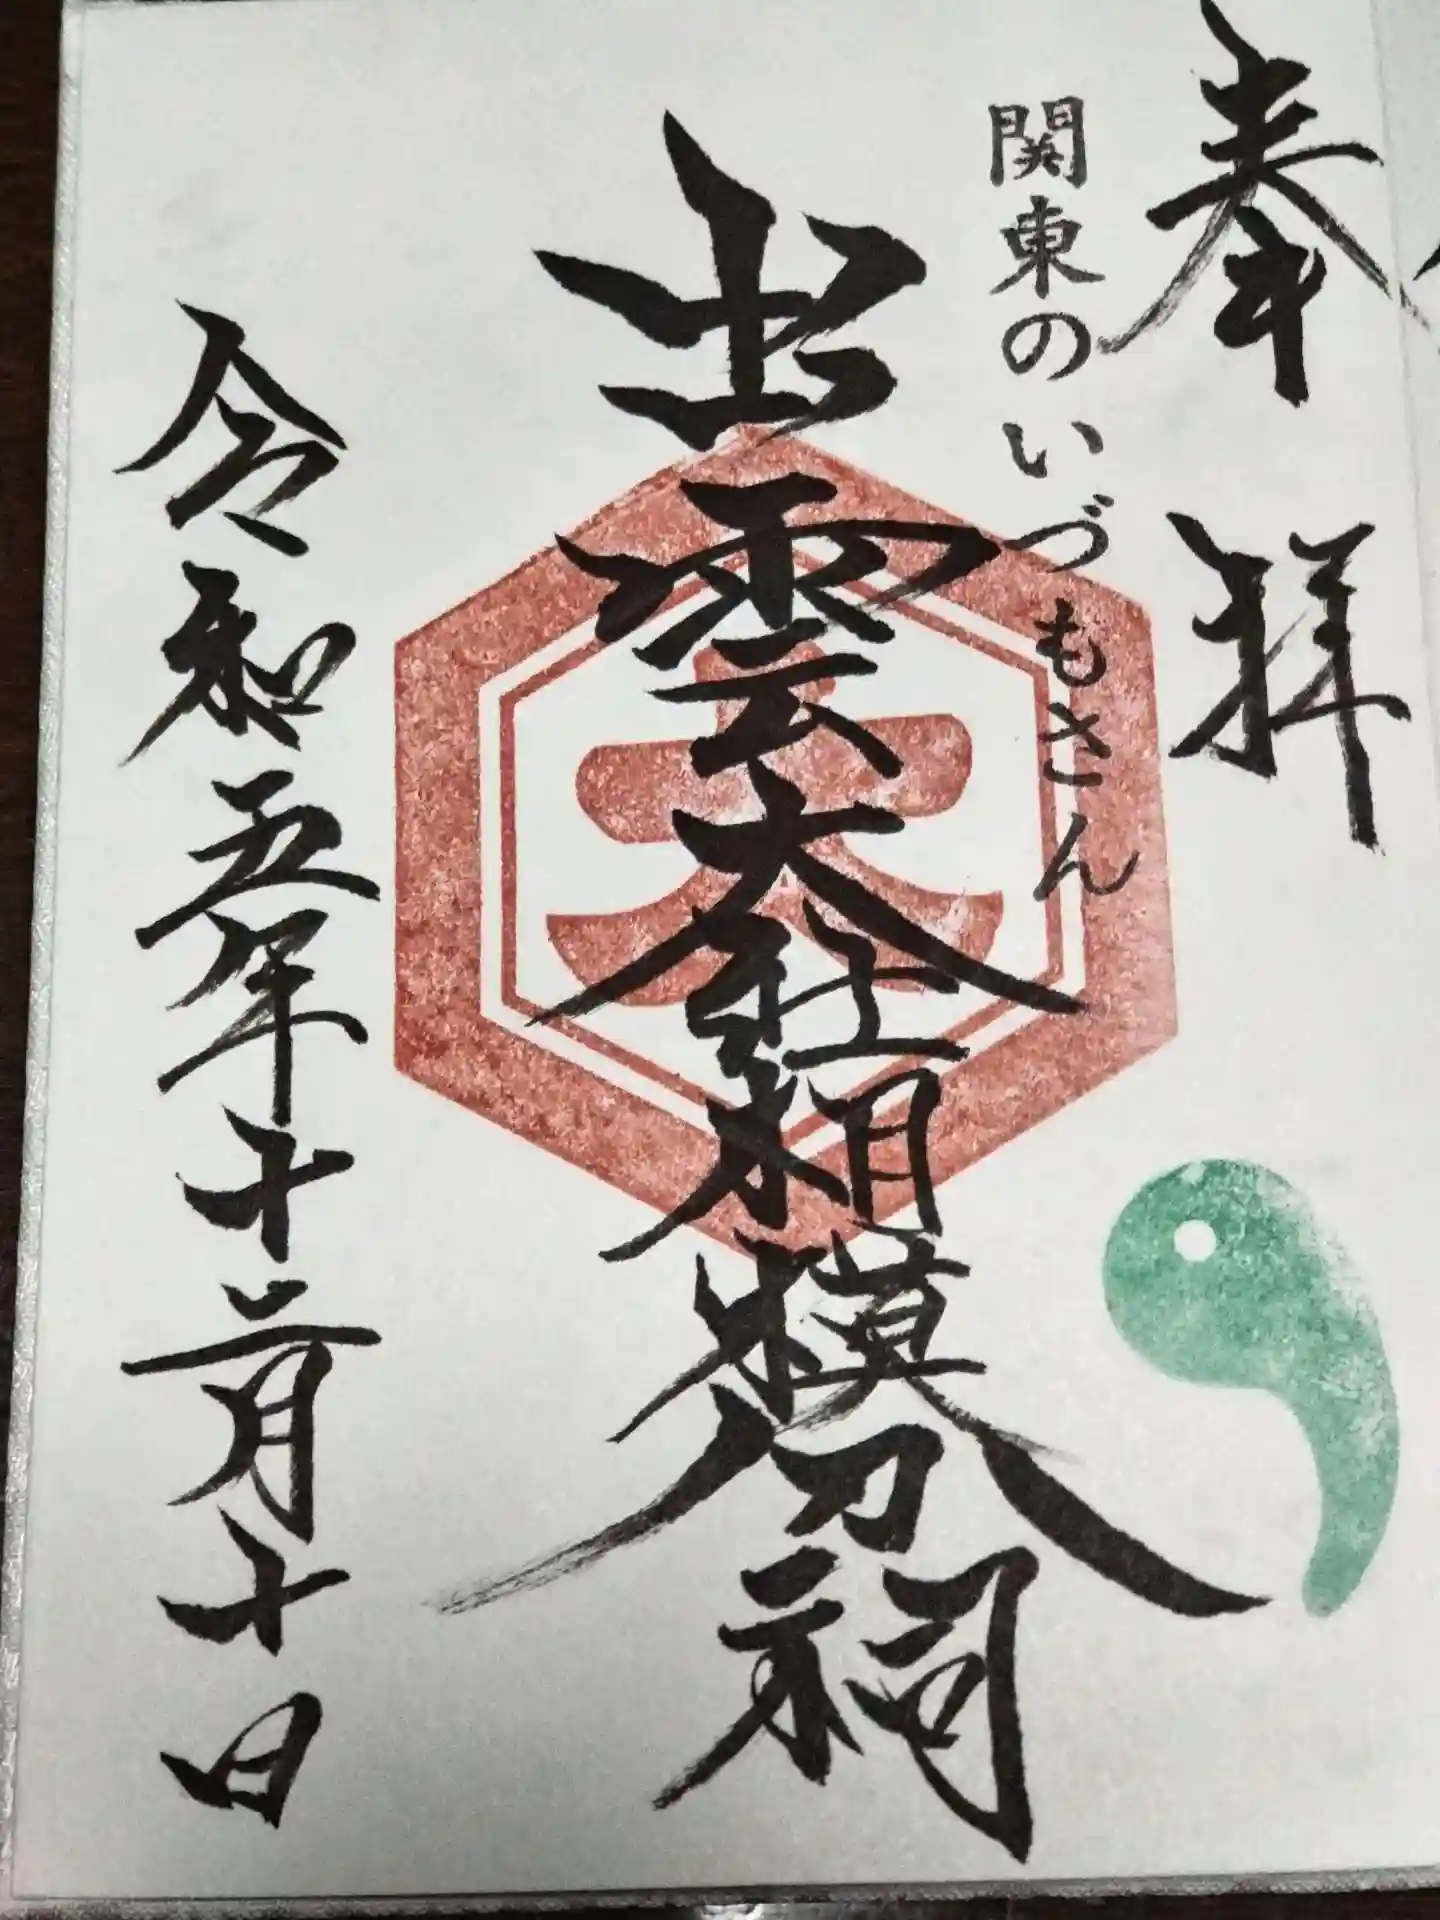 奉拝
関東のいづもさん
出雲大社相模分祠
令和五年十二月十日